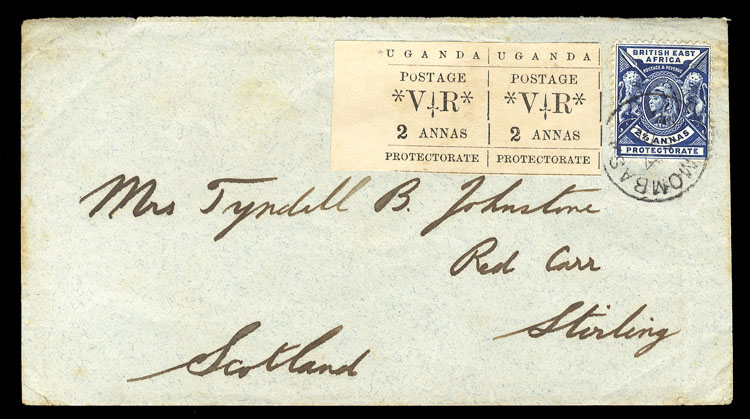 UGANDA UGANDA
POSTAGE POSTAGE
*V†R* *V†R*
2 ANNAS 2 ANNAS
PROTECTORATE PROTECTORATE
BRITISH EAST
AFRICA
POSTAGE & REVENUE
2½ ANNAS
PROTECTORATE
MOMBASA
Mrs Tyndell B. Johnstone
Red Carr
Stirling
Scotland